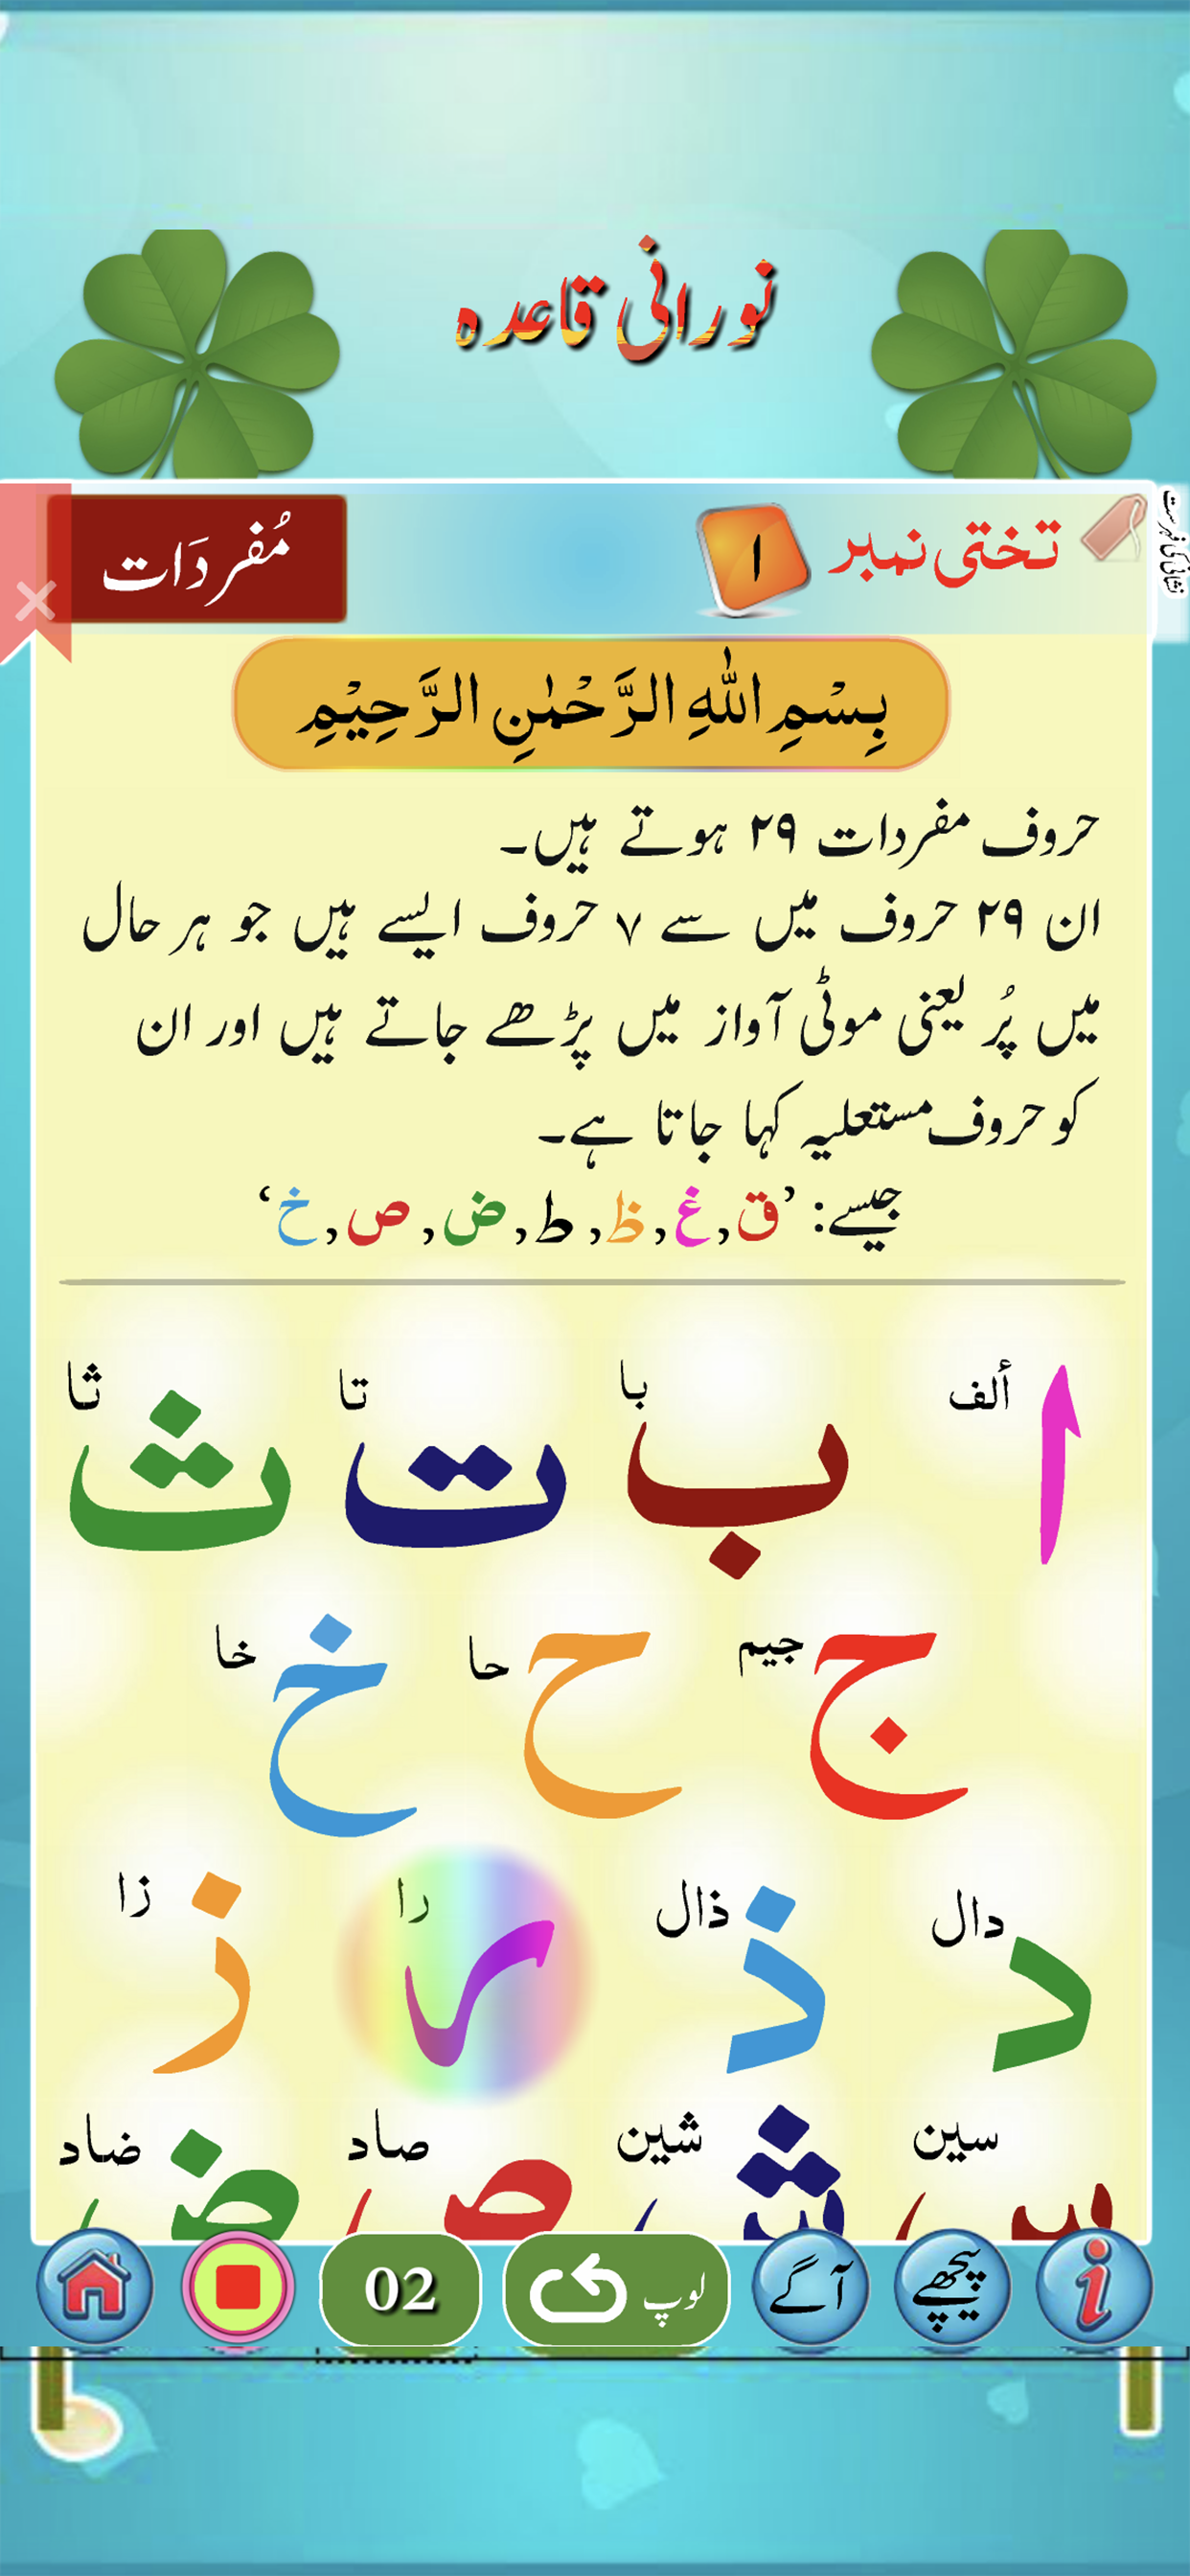 نورانی قاعدہ
نشانی کی فہرست
تختی نمبر ۱
مُفردَات
بِسْمِ اللّٰهِ الرَّحْمٰنِ الرَّحِيْمِ
حروف مفردات ۲۹ ہوتے ہیں۔
ان ۲۹ حروف میں سے ۷ حروف ایسے ہیں جو ہر حال
میں پُر یعنی موٹی آواز میں پڑھے جاتے ہیں اور ان
کو حروف مستعلیہ کہا جاتا ہے۔
جیسے: ’ق,غ,ظ,ط,ض,ص,خ‘
ا ألف ب با ت تا ث ثا
ج جیم ح حا خ خا
د دال ذ ذال ر را ز زا
س سین ش شین ص صاد ض ضاد
i پیچھے آگے لوپ 02